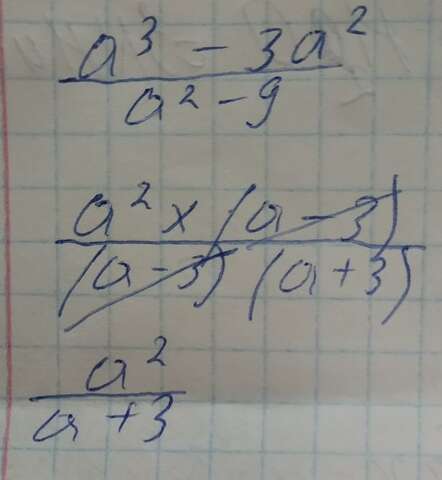 a³ - 3a²
a² - 9
a² x (a - 3)
(a - 3) (a + 3)
a²
a + 3